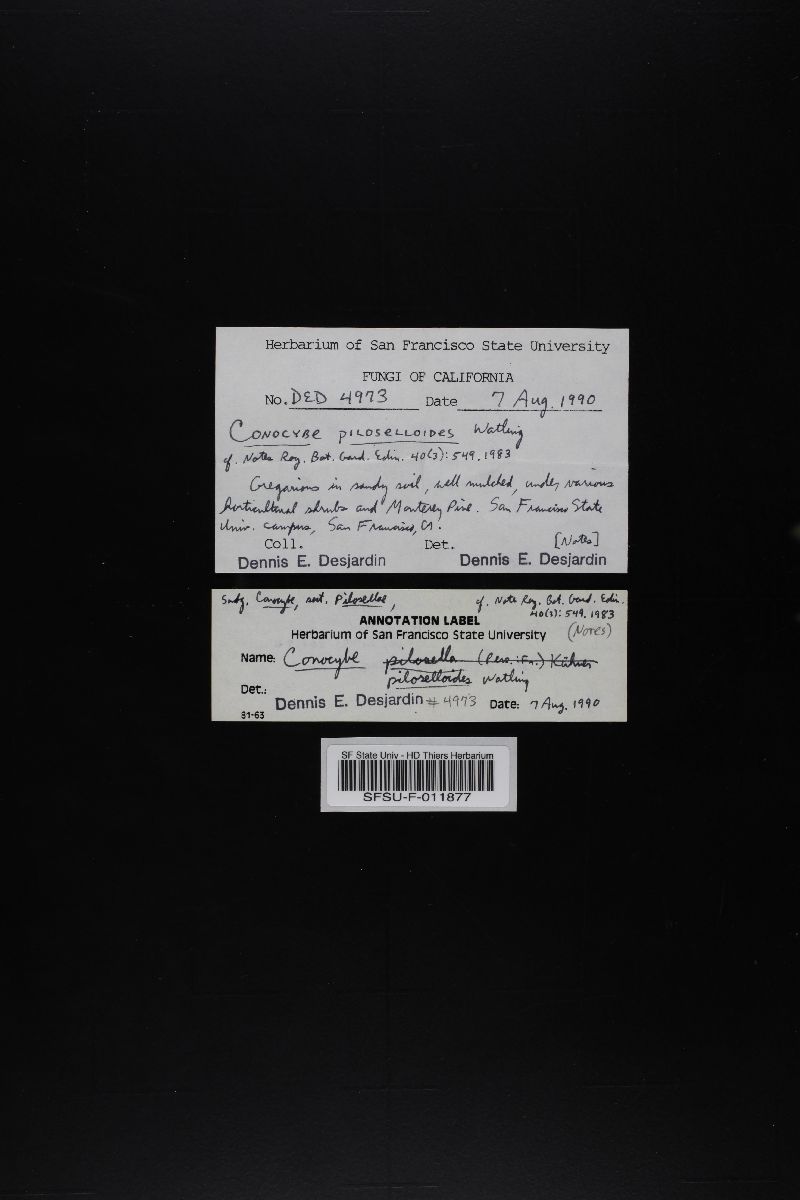 Herbarium of San Francisco State University
FUNGI OF CALIFORNIA
No. DED 4973 Date 7 Aug. 1990
CONOCYBE PILOSELLOIDES Watling
cf. Notes Roy. Bot. Gard. Edin. 40(3): 549. 1983
Gregarious in sandy soil, well mulched, under various
horticultural shrubs and Monterey Pine. San Francisco State
Univ. campus, San Francisco, CA.
Coll. Det. [Notes]
Dennis E. Desjardin Dennis E. Desjardin
Subg. Conocybe, sect. Pilosellae, cf. Note Roy. Bot. Gard. Edin.
40(3): 549. 1983
ANNOTATION LABEL
Herbarium of San Francisco State University (Notes)
Name: Conocybe pilosella (Pers.:Fr.) Kühner
piloselloides Watling
Det.: Dennis E. Desjardin # 4973 Date: 7 Aug. 1990
31-63
SF State Univ - HD Thiers Herbarium
SFSU-F-011877